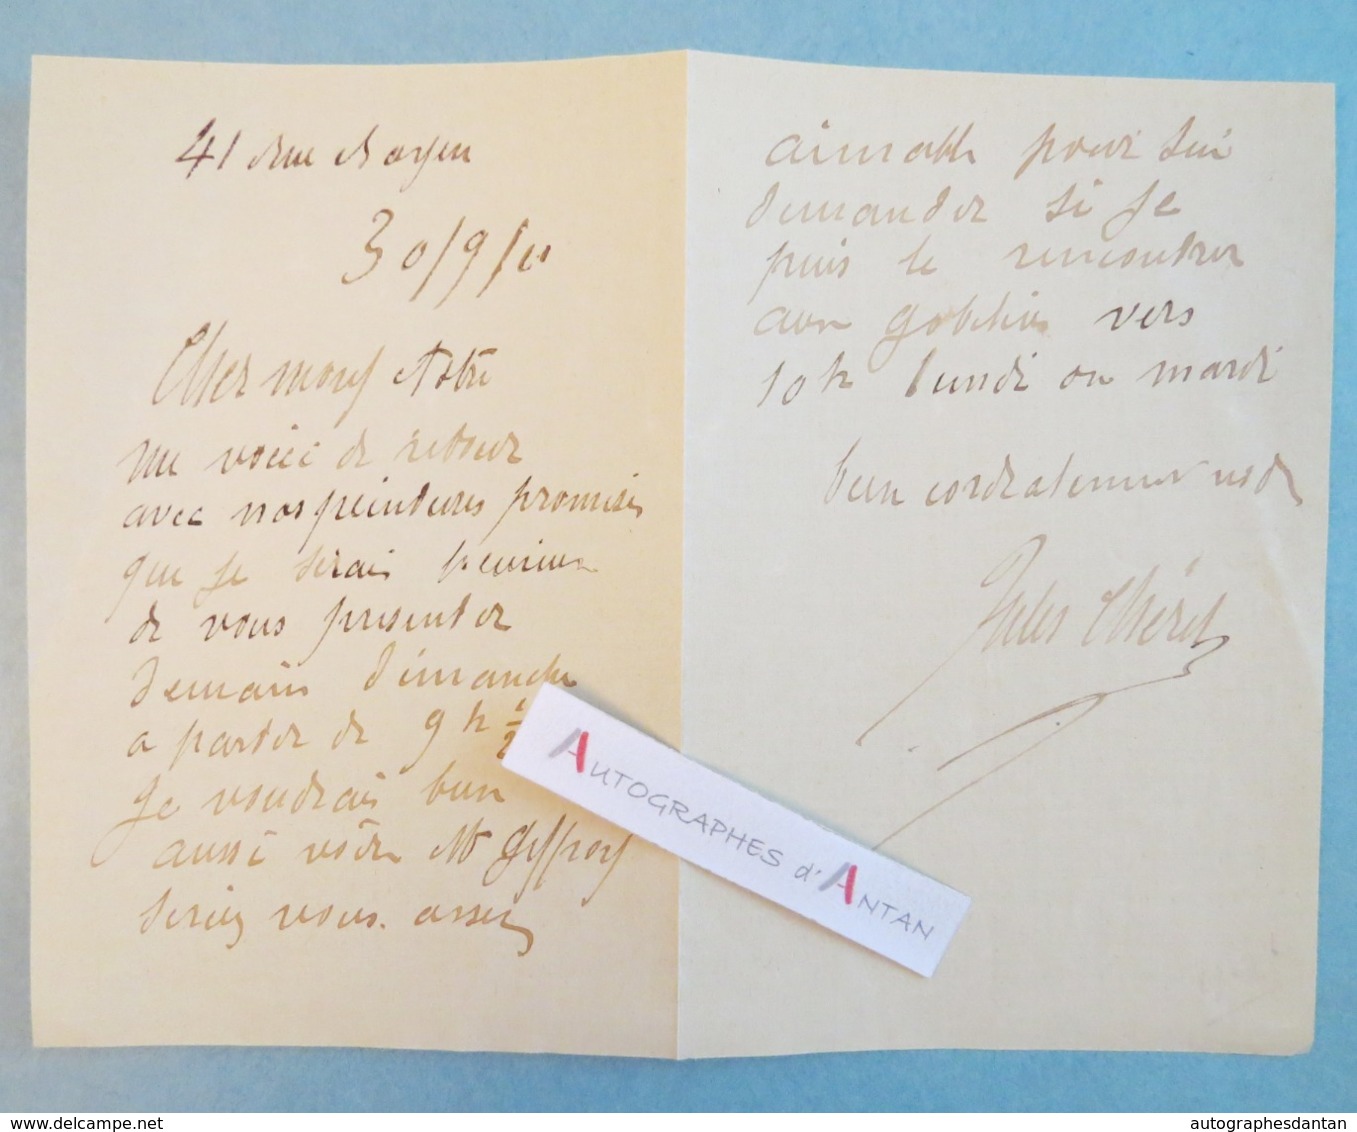 41 rue
30/9/11
Cher mons Notre
me voici de retour
avec nos peintures promises
que je serais heureux
de vous presenter
demain dimanche
a partir de 9 h ½
je voudrais bien
aussi voir Mr Geffroy
seriez vous assez
aimable pour lui
demander si je
puis le rencontrer
aux gobelins vers
10 h lundi ou mardi
bien cordialement
Jules Chéret
AUTOGRAPHES d'ANTAN
www.delcampe.net
autographesdantan